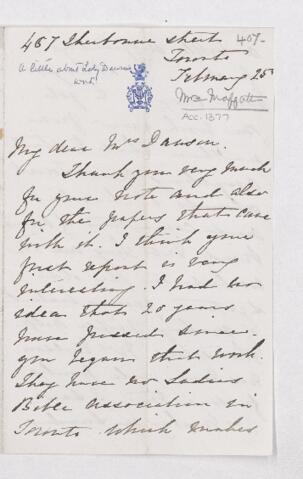 467 Sherbourne Street 467-
Toronto
A letter about Lady Dawson's
work
February 25
Mrs Moffatt
ACC. 1377
My dear Mrs Dawson.
Thank you very much
for your note and also
for the papers that came
with it. I think your
first report is very
interesting. I had no
idea that 20 years
have passed since
you began that work.
They have no Ladies
Bible Association in
Toronto which makes